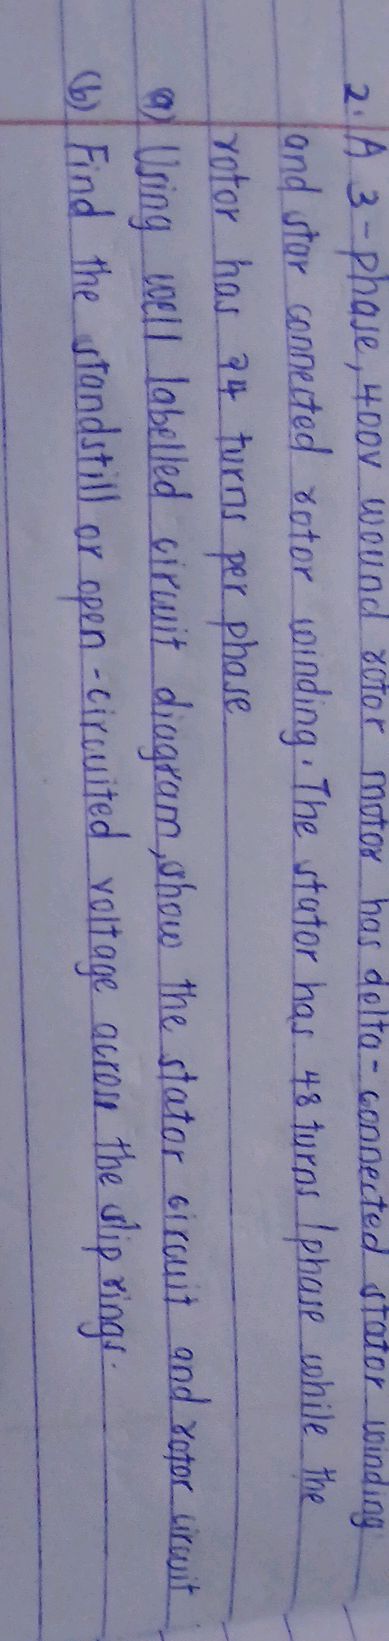 2. A 3-phase, 400V wound rotor motor has delta-connected stator winding
and star connected rotor winding. The stator has 48 turns/phase while the
rotor has 24 turns per phase
(a) Using well labelled circuit diagram, show the stator circuit and rotor circuit
(b) Find the standstill or open-circuited voltage across the slip rings.